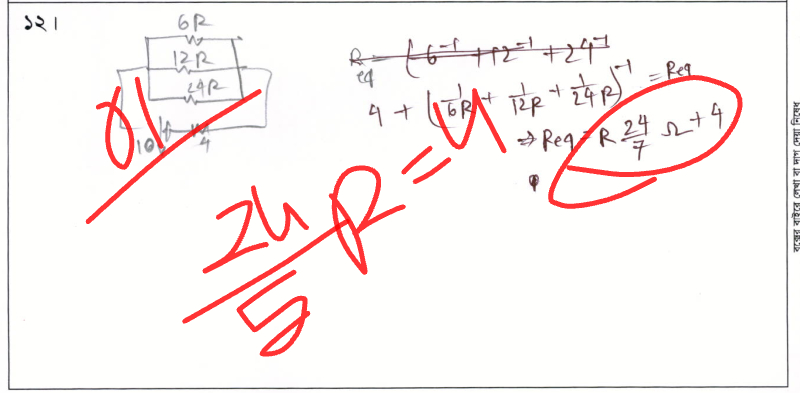 ১২।
6R
12R
24R
10
4
R eq = (6⁻¹ + 12⁻¹ + 24⁻¹
4 + (1/6R + 1/12R + 1/24R)⁻¹ = Req
⇒ Req = R 24/7 Ω + 4
24/5 R = 4
বক্সের বাইরে লেখা বা দাগ দেয়া নিষেধ